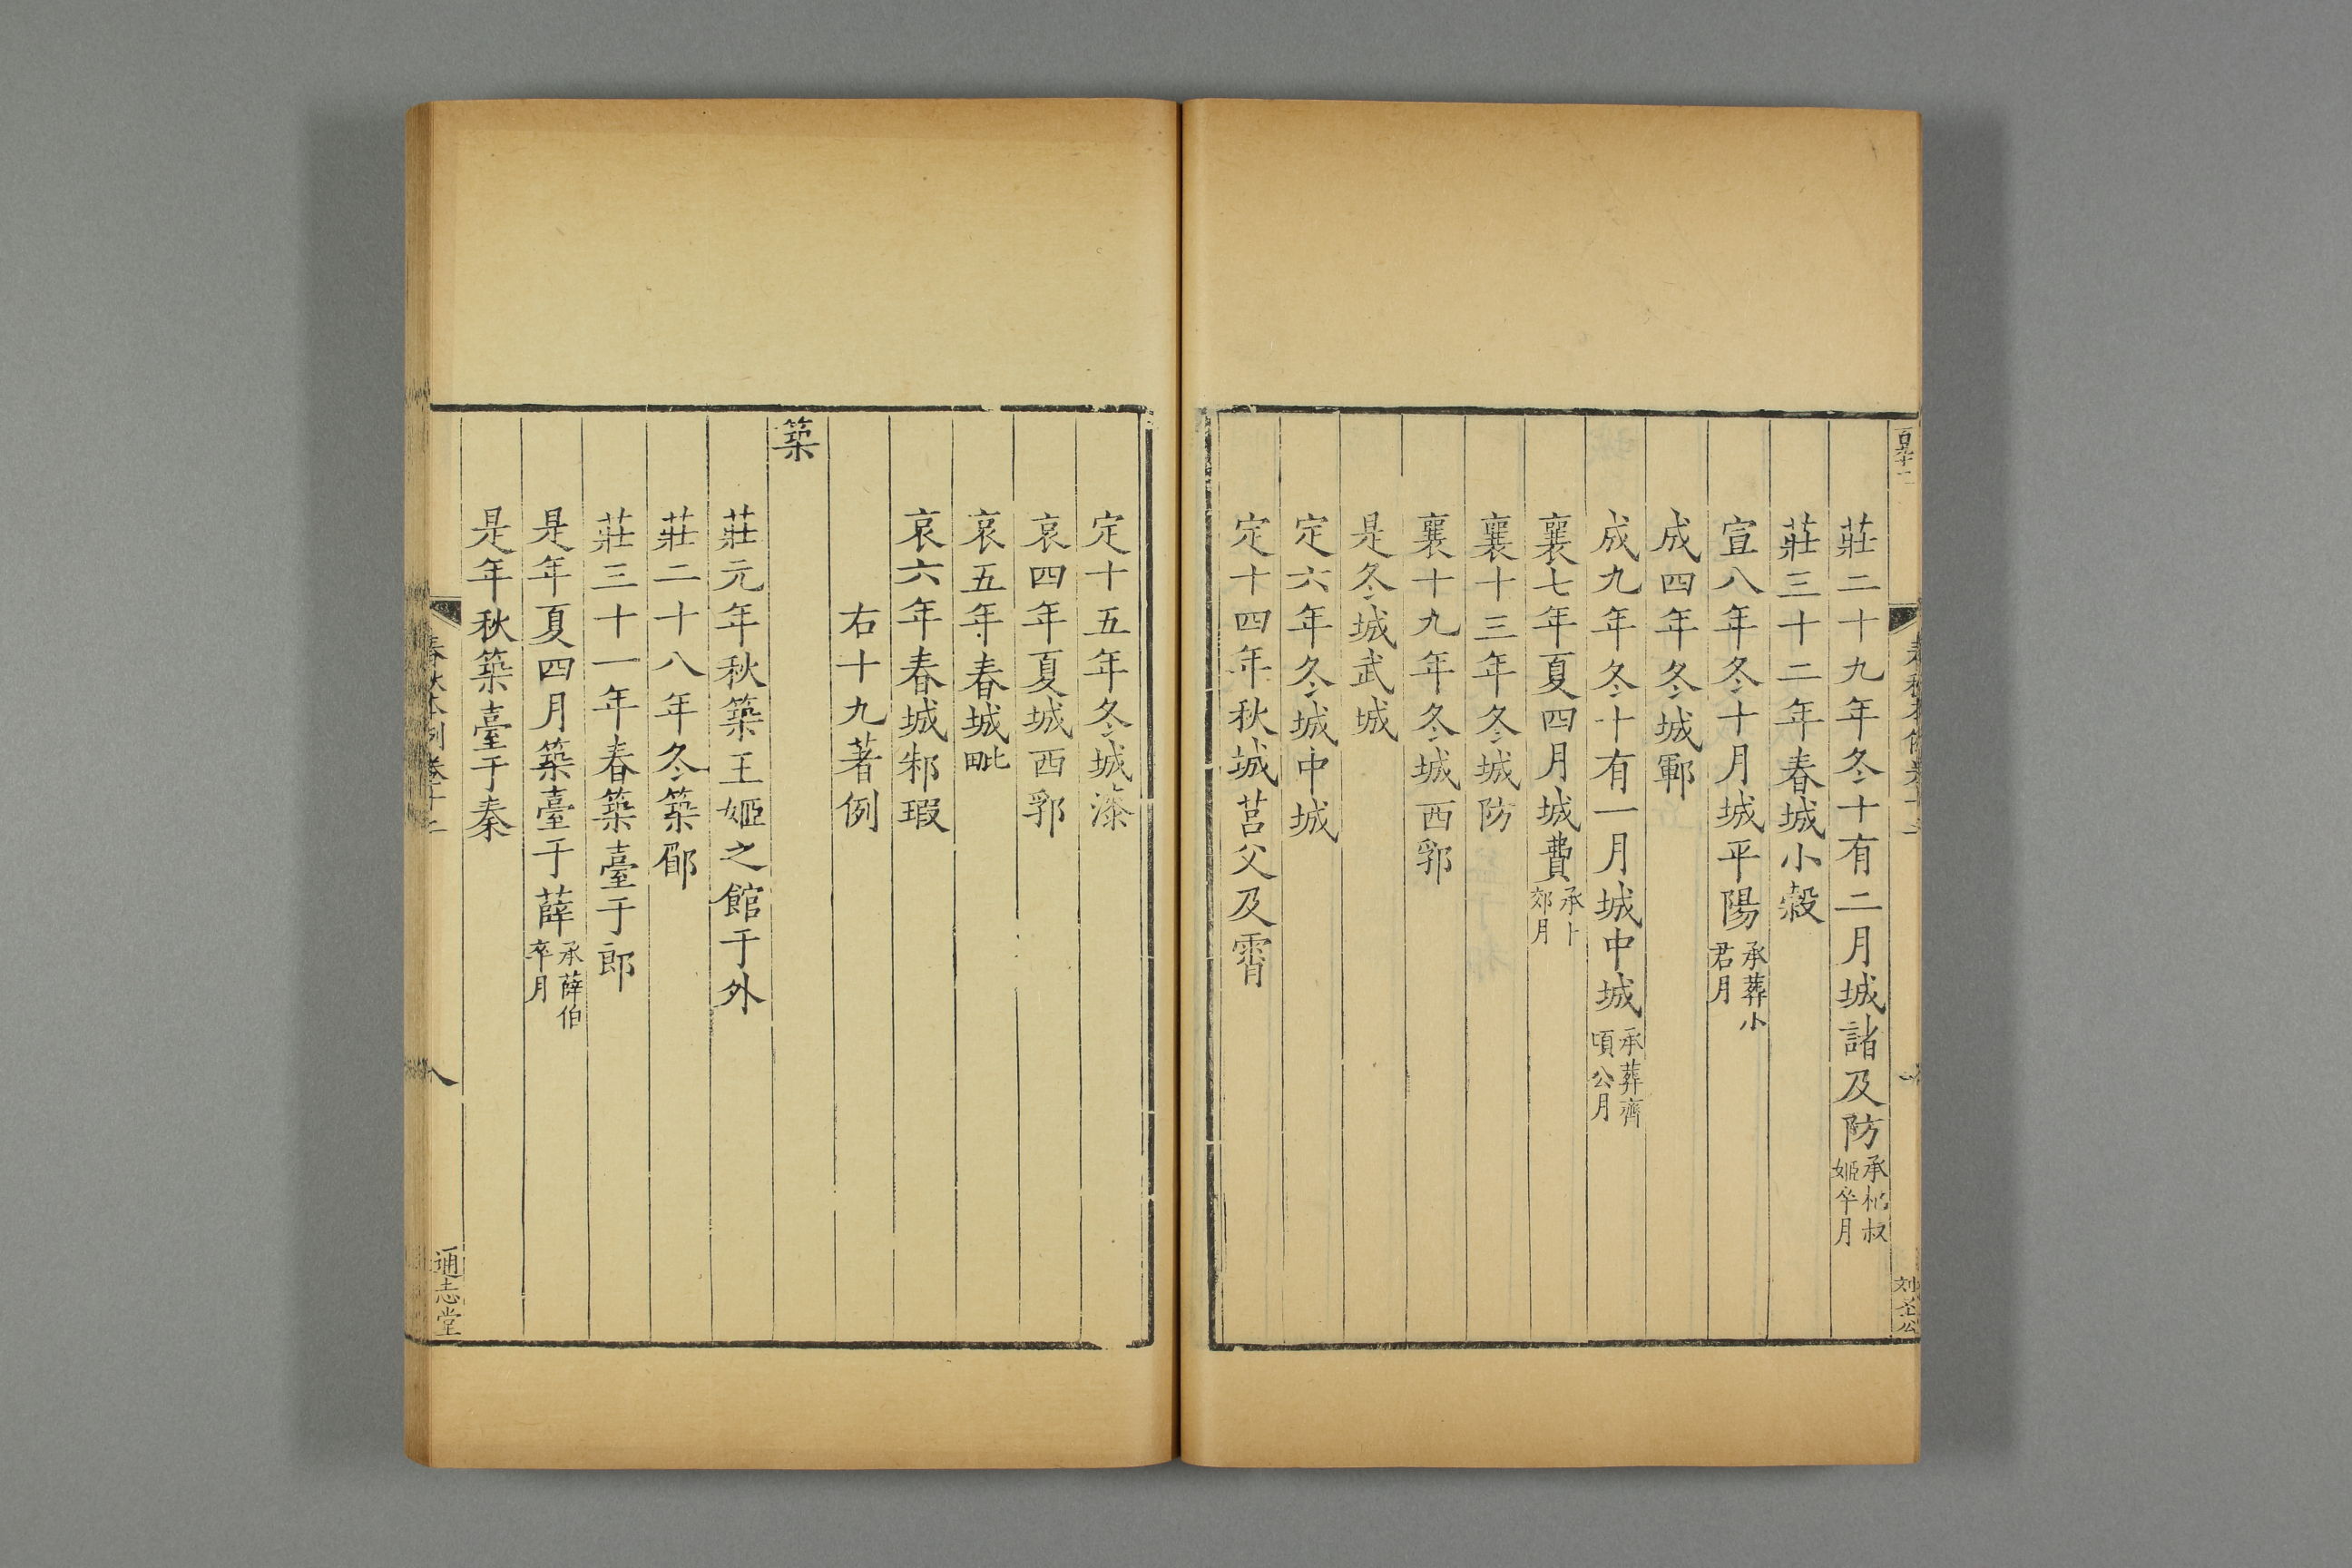 莊二十九年冬十有二月城諸及防承杞叔姬卒月
莊三十二年春城小穀
宣八年冬十月城平陽承葬小君月
成四年冬城鄆
成九年冬十有一月城中城承葬齊頃公月
襄七年夏四月城費承卜郊月
襄十三年冬城防
襄十九年冬城西郛
是冬城武城
定六年冬城中城
定十四年秋城莒父及霄
定十五年冬城漆
哀四年夏城西郛
哀五年春城毗
哀六年春城邾瑕
右十九著例
築
莊元年秋築王姬之館于外
莊二十八年冬築郿
莊三十一年春築臺于郎
是年夏四月築臺于薛承薛伯卒月
是年秋築臺于秦
春秋本例卷十二
八
通志堂